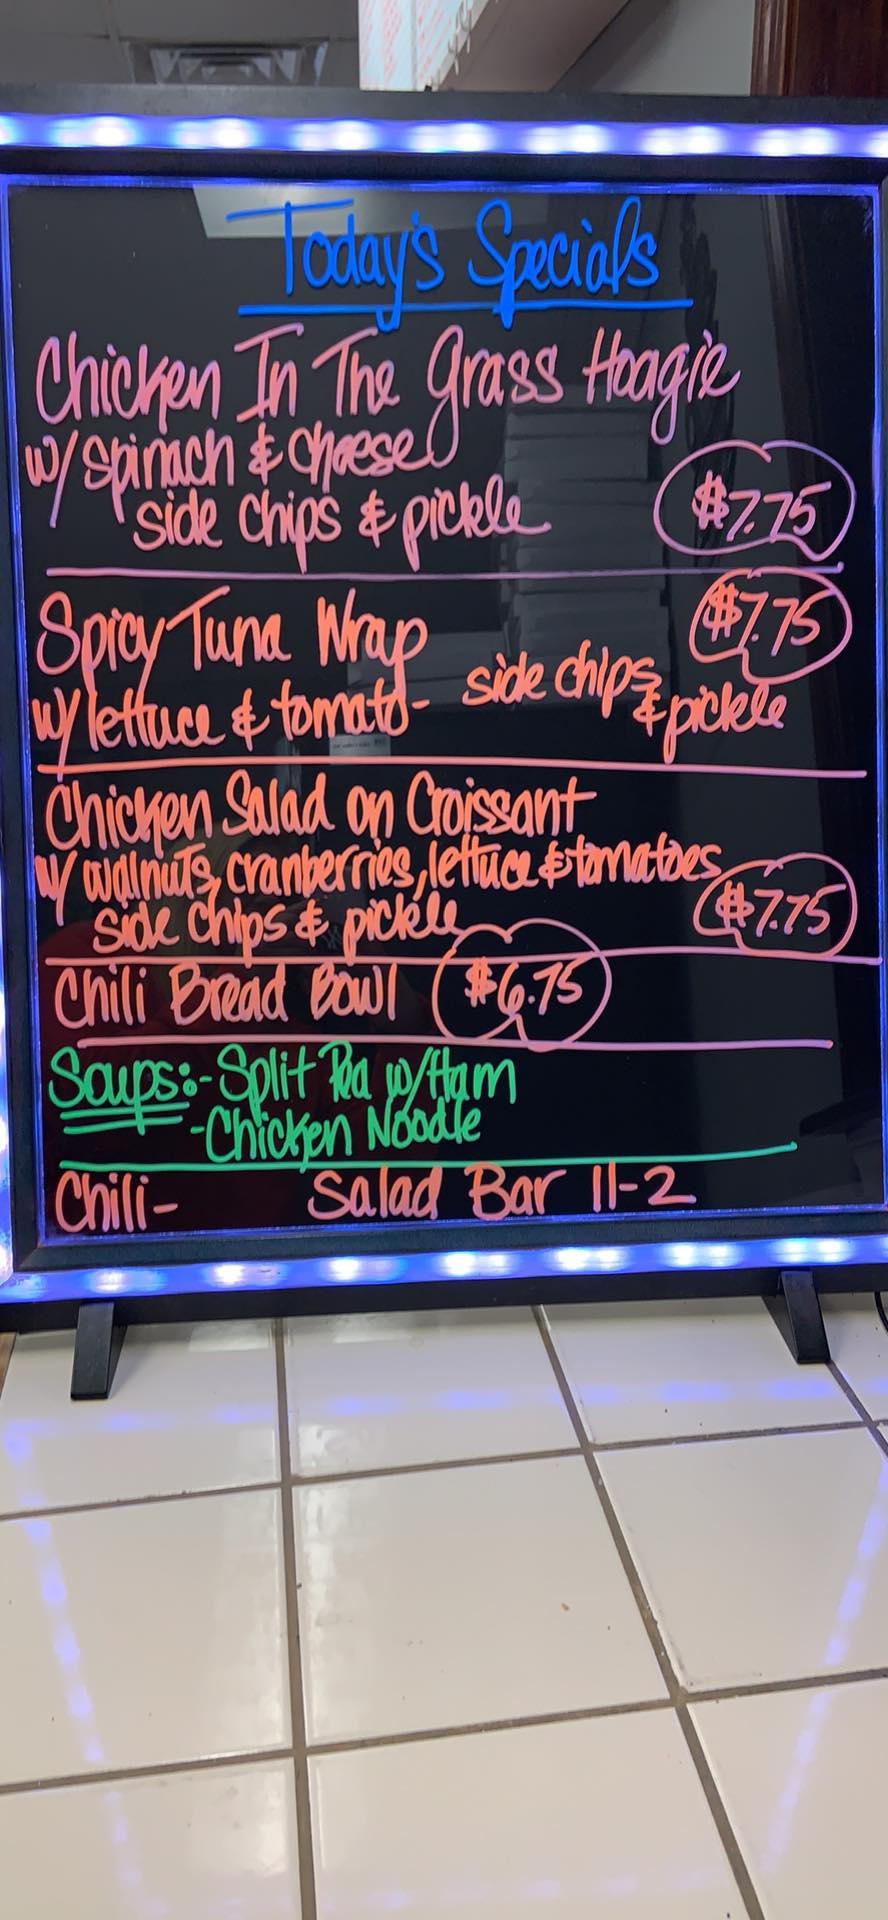 Today's Specials
Chicken In The Grass Hoagie
w/ spinach & cheese
side chips & pickle
$7.75
Spicy Tuna Wrap
$7.75
w/ lettuce & tomato- side chips
& pickle
Chicken Salad on Croissant
w/ walnuts, cranberries, lettuce & tomatoes
side chips & pickle
$7.75
Chili Bread Bowl $6.75
Soups:- Split Pea w/Ham
-Chicken Noodle
Chili- Salad Bar 11-2